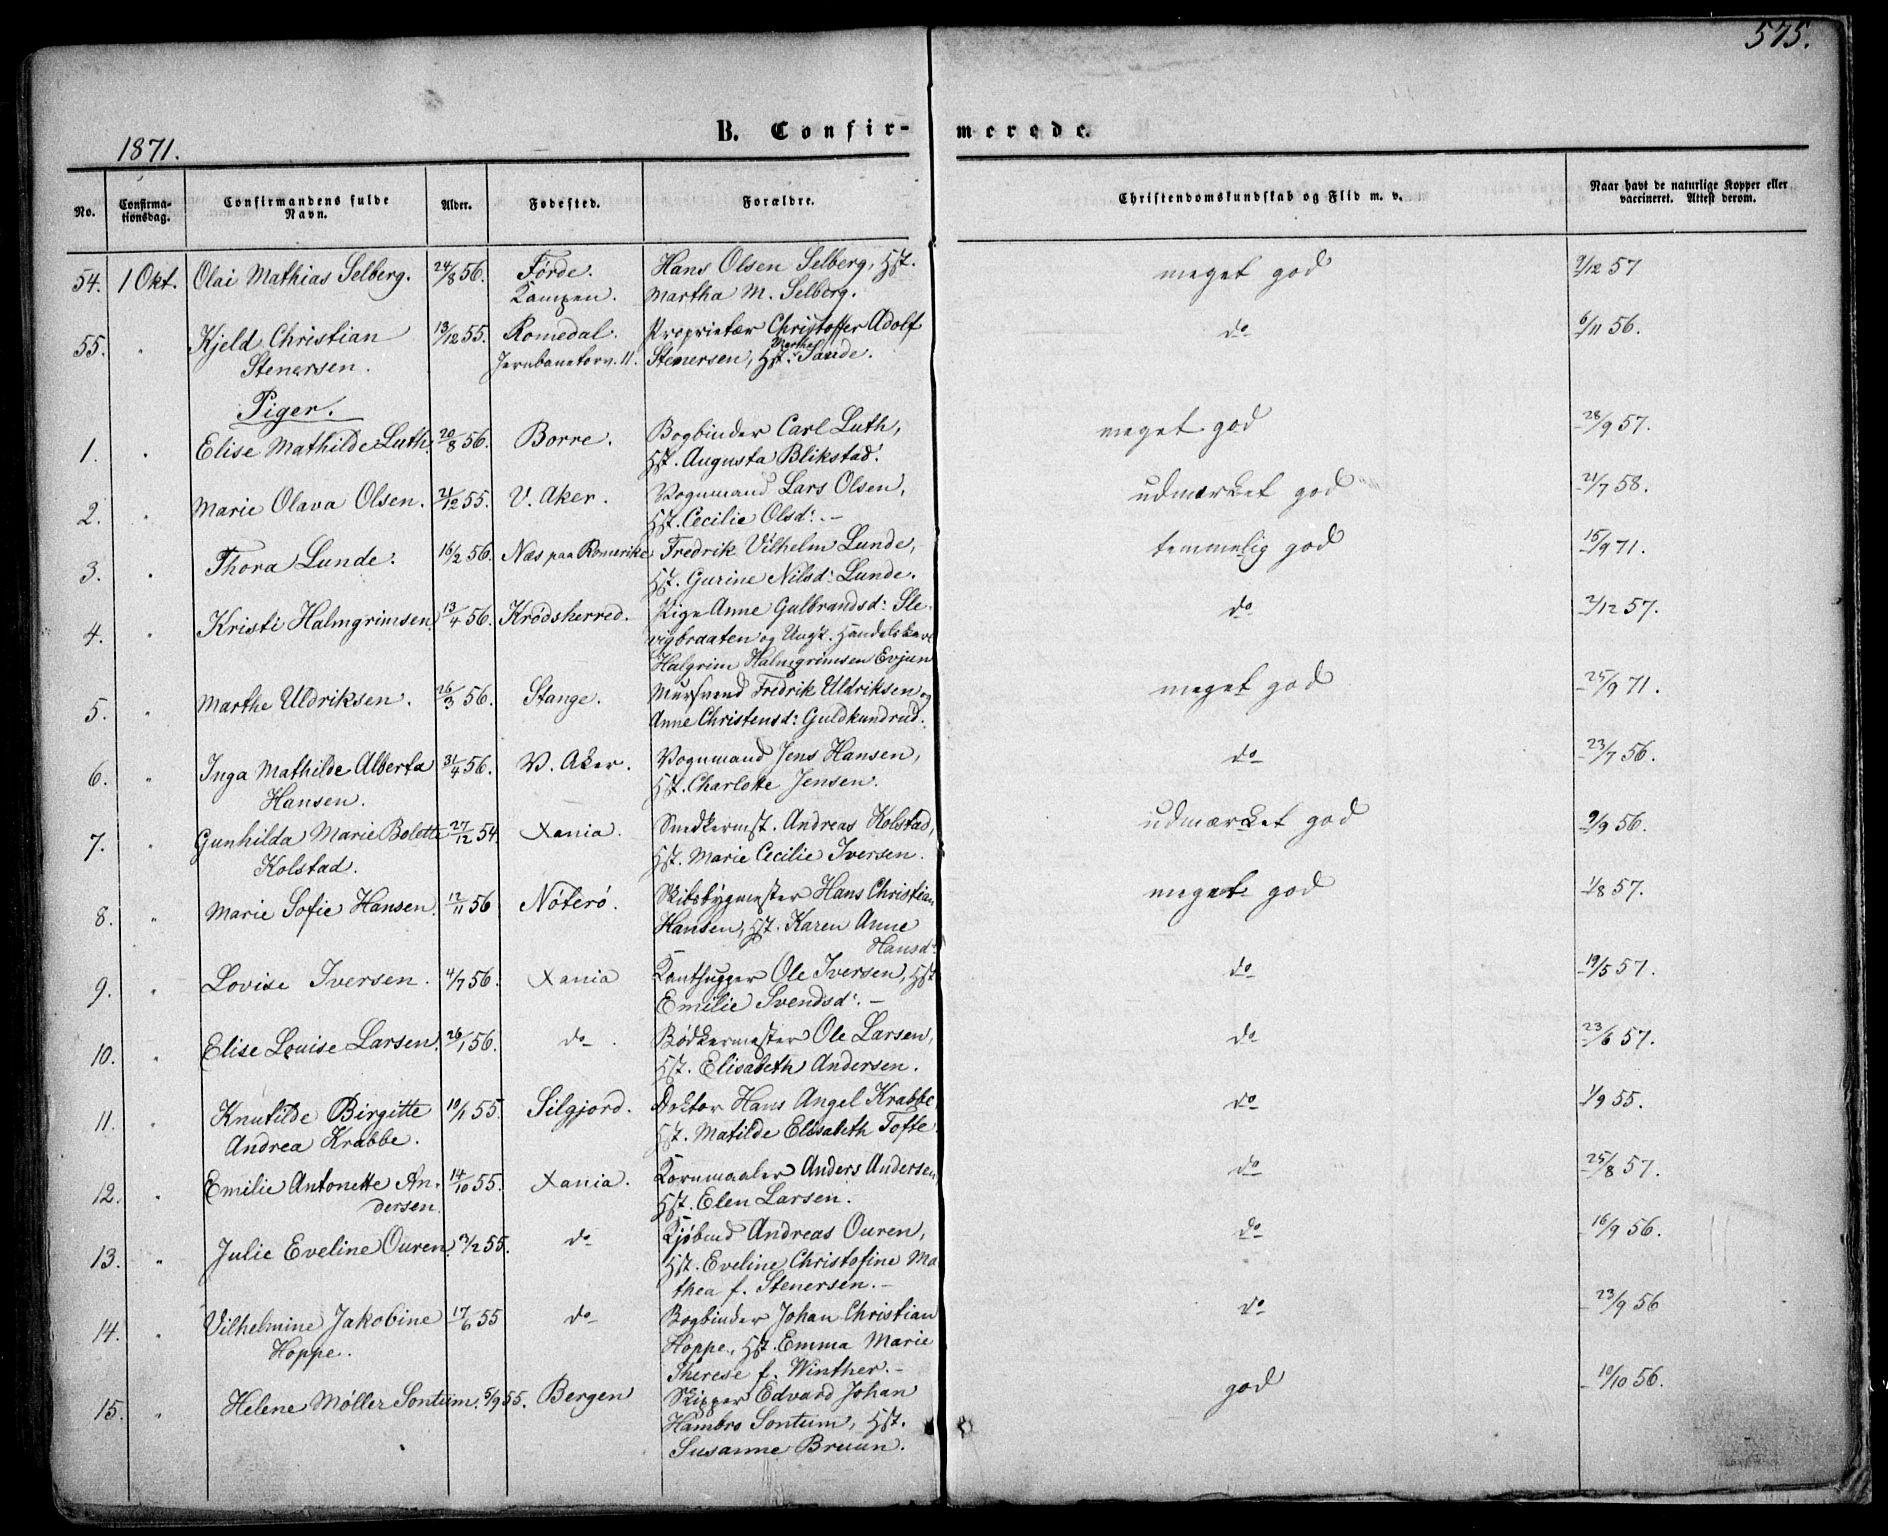 575.
1871.
B. Confirmerede.
No. Confirmationsdag. Confirmandens fulde Navn. Alder. Fødested. Forældre. Christendomskundskab og Flid m. v. Naar havt de naturlige Kopper eller vaccineret. Attest derom.
54. 1 Okt. Olai Mathias Selberg. 24/8 56. Førde. Hans Olsen Selberg, Hst. meget god 2/12 57
Kampen. Martha M. Selberg.
55. " Kjeld Christian 13/12 55. Romedal. Proprietær Christoffer Adolf do 6/11 56.
Stenersen. Jernbanetorv. 11. Stenersen, Hst. Marthe Sande.
Piger.
1. " Elise Mathilde Luth. 20/8 56. Borre. Bogbinder Carl Luth, meget god 28/9 57.
Hst. Augusta Blikstad.
2. " Marie Olava Olsen. 21/12 55. V. Aker. Vognmand Lars Olsen, udmærket god 21/7 58.
Hst. Cecilie Olsd: –
3. " Thora Lunde. 16/2 56. Næs paa Romerike. Fredrik Vilhelm Lunde, temmelig god 15/9 71.
Hst. Gurine Nilsd: Lunde.
4. " Kristi Halmgrimsen. 13/4 56. Krødsherred. Pige Anne Gulbrandsd: Sle- do 2/12 57.
vigbraaten og Ungk. Handelskarl
Halgrim Halmgrimsen Evjun
5. " Marthe Uldriksen. 26/3 56. Stange. Mursvend Fredrik Uldriksen og meget god 25/9 71.
Anne Christensd: Guldkundrud.
6. " Inga Mathilde Alberta 31/4 56. V. Aker. Vognmand Jens Hansen, do 23/7 56.
Hansen. Hst. Charlotte Jensen.
7. " Gunhilda Marie Bolette 27/12 54. Xania. Snedkermst. Andreas Kolstad, udmærket god 9/9 56.
Kolstad. Hst. Marie Cecilie Iversen.
8. " Marie Sofie Hansen. 12/11 56 Nøterø. Skibsbygmester Hans Christian meget god 1/8 57.
Hansen, Hst. Karen Anne
Hansd:
9. " Lovise Iversen. 4/7 56. Xania Kanthugger Ole Iversen, Hst. do 19/5 57.
Emilie Svendsd: –
10. " Elise Louise Larsen. 26/1 56. do. Bødkermester Ole Larsen, do 23/6 57.
Hst. Elisabeth Andersen.
11. " Knutilde Birgitte 10/1 55. Silgjord. Doktor Hans Angel Krabbe, do 1/9 55.
Andrea Krabbe. Hst. Matilde Elisabeth Tofte.
12. " Emilie Antonette An- 14/10 55. Xania. Kornmaaler Anders Andersen, do 25/8 57.
dersen. Hst. Elen Larsen.
13. " Julie Eveline Ouren. 3/2 55. do Kjøbmd Andreas Ouren, do 16/9 56.
Hst. Eveline Christofine Ma-
thea f. Stenersen. –
14. " Vilhelmine Jakobine 17/6 55 do Bogbinder Johan Christian do 23/9 56
Hoppe. Hoppe, Hst. Emma Marie
Therese f. Winther. –
15. " Helene Møller Sontum. 5/9 55. Bergen Skipper Edvard Johan god 10/10 56.
Hambro Sontum, Hst.
Susanne Bruun.